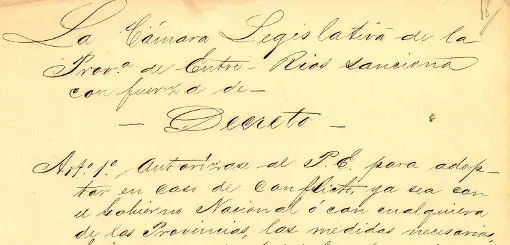 La Cámara Legislativa de la
Prov.ª de Entre-Rios sanciona
con fuerza de-
- Decreto -
Art.º 1º Autorízase al P. E. para adop-
tar en caso de conflicto, ya sea con
el Gobierno Nacional ó con cualquiera
de las Provincias, las medidas necesarias,